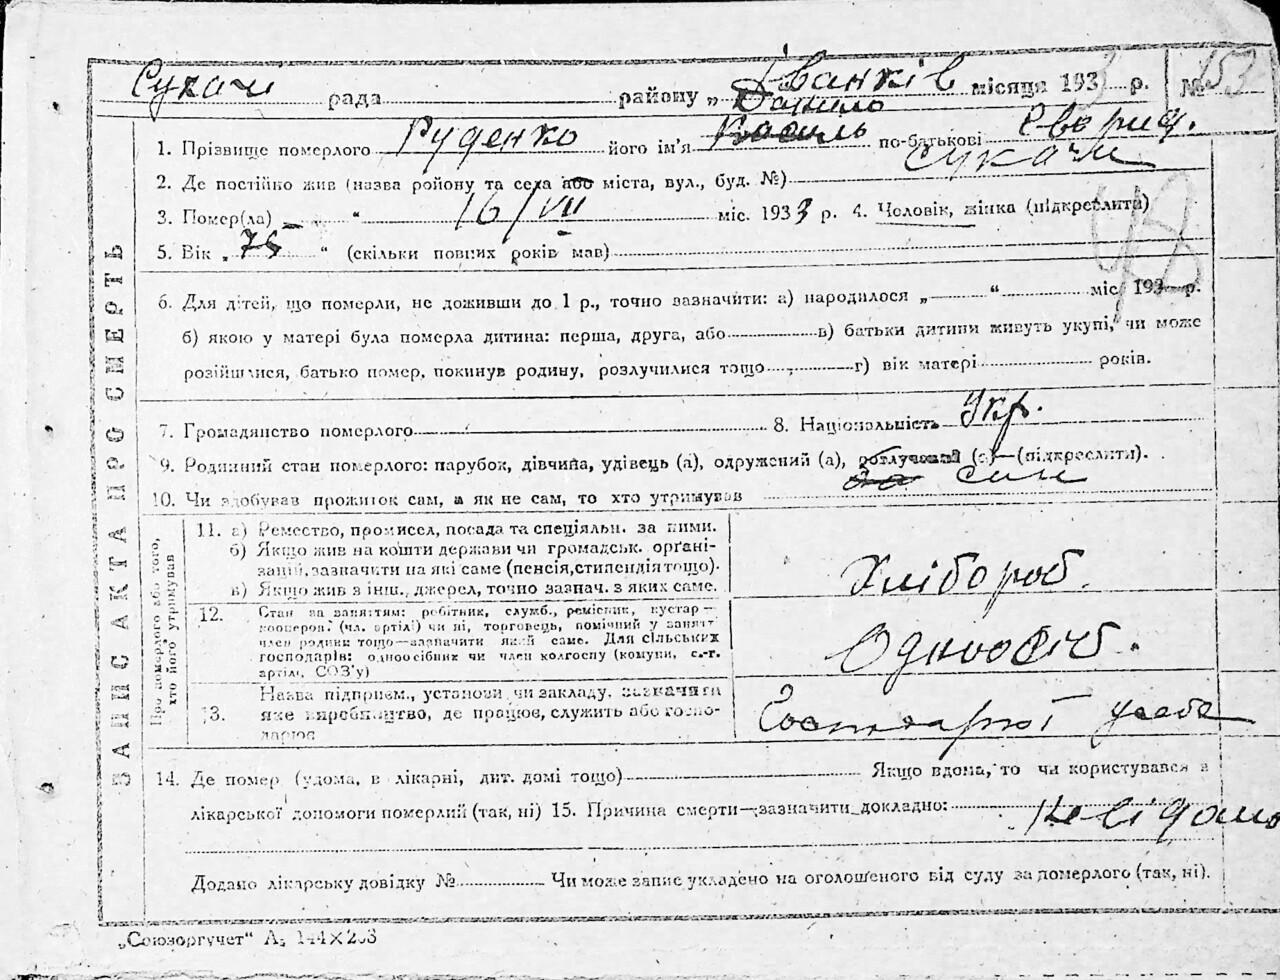 Сукачі рада району „ Іванків місяця 1933 р. № 153
Данило
1. Прізвище померлого Руденко його ім'я Василь по-батькові
2. Де постійно жив (назва ройону та села або міста, вул., буд. №) Сукачі
3. Помер(ла) „ “ 16/VII міс. 1933 р. 4. Чоловік, жінка (підкреслити)
5. Вік „ 75 “ (скільки повних років мав)
6. Для дітей, що померли, не доживши до 1 р., точно зазначити: а) народилося „ “ міс. 193 р.
б) якою у матері була померла дитина: перша, друга, або в) батьки дитини живуть укупі, чи може
розійшлися, батько помер, покинув родину, розлучилися тощо г) вік матері років.
7. Громадянство померлого 8. Національність Укр.
9. Родинний стан померлого: парубок, дівчина, удівець (а), одружений (а), розлучений (а)—(підкреслити).
10. Чи здобував прожиток сам, а як не сам, то хто утримував син
ЗАПИС АКТА ПРО СМЕРТЬ
Про померлого або того, хто його утримував
11. а) Ремество, промисел, посада та спеціяльн. за ними.
б) Якщо жив на кошти держави чи громадськ. органі-
зацій, зазначити на які саме (пенсія, стипендія тощо).
в) Якщо жив з інш. джерел, точно зазнач. з яких саме.
Хлібороб.
12. Стан за заняттям: робітник, служб., ремісник, кустар—
кооперов. (чл. артілі) чи ні, торговець, помічний у занятт
член родини тощо—зазначити який саме. Для сільських
господарів: одноосібник чи член колгоспу (комуни, с.-г.
артілі, СОЗ'у)
Одноосіб.
13. Назва підприєм., установи чи закладу, зазначити
яке виробництво, де працює, служить або госпо-
дарює
14. Де помер (удома, в лікарні, дит. домі тощо) Якщо вдома, то чи користувався з
лікарської допомоги померлий (так, ні) 15. Причина смерти—зазначити докладно: Невідомо
Додано лікарську довідку № Чи може запис укладено на оголошеного від суду за померлого (так, ні).
„Союзоргучет“ А₅ 144×203